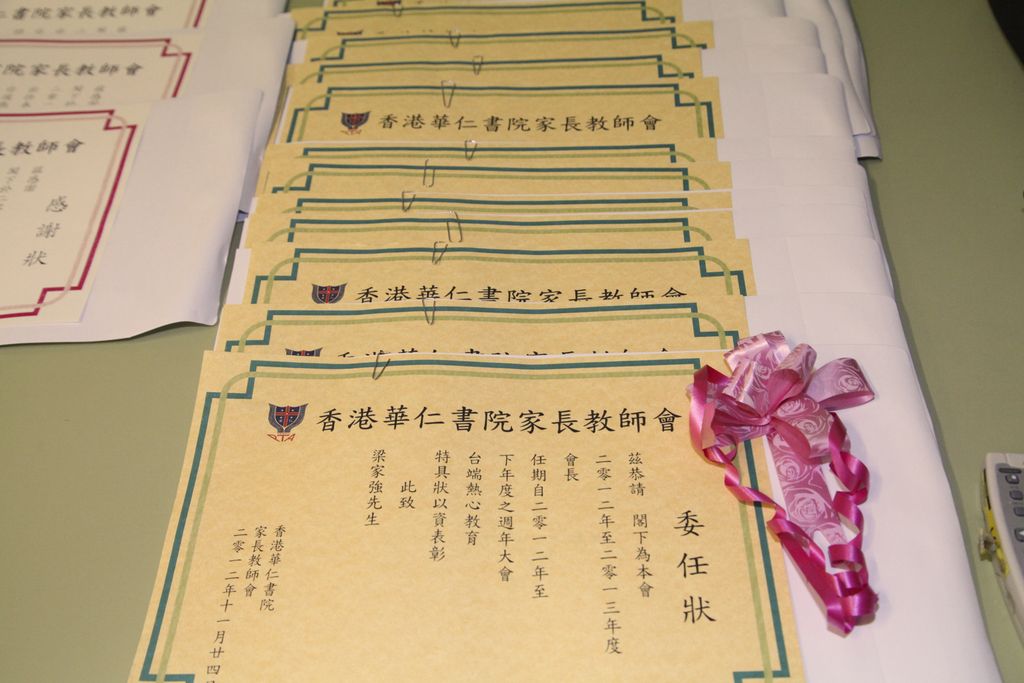 書院家長教師會
院家長教師會
長教師會
感謝狀
香港華仁書院家長教師會
香港華仁書院家長教師會
香港華仁書院家長教師會
香港華仁書院家長教師會
PTA
委任狀
茲恭請 閣下為本會
二零一二年至二零一三年度
會長
任期自二零一二年至
下年度之週年大會
台端熱心教育
特具狀以資表彰
此致
梁家強先生
香港華仁書院
家長教師會
二零一二年十一月廿四